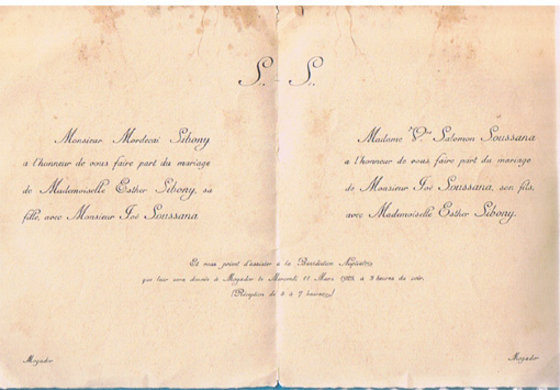 S. - S.
Monsieur Mordecai Sibony
a l'honneur de vous faire part du mariage
de Mademoiselle Esther Sibony, sa
fille, avec Monsieur Joë Soussana
Madame Vve Salomon Soussana
a l'honneur de vous faire part du mariage
de Monsieur Joë Soussana, son fils,
avec Mademoiselle Esther Sibony.
Et vous prient d'assister à la Bénédiction Nuptiale
qui leur sera donnée à Mogador le Mercredi 11 Mars à 3 heures du soir.
(Réception de 4 à 7 heures)
Mogador
Mogador